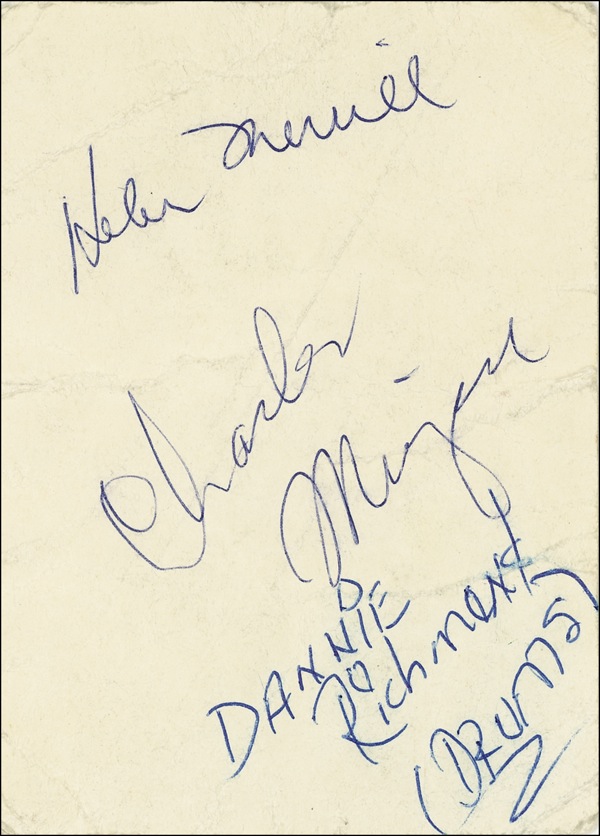 Helen Merrill
Charles
Mingus
DANNIE
Richmond
(DRUMS)